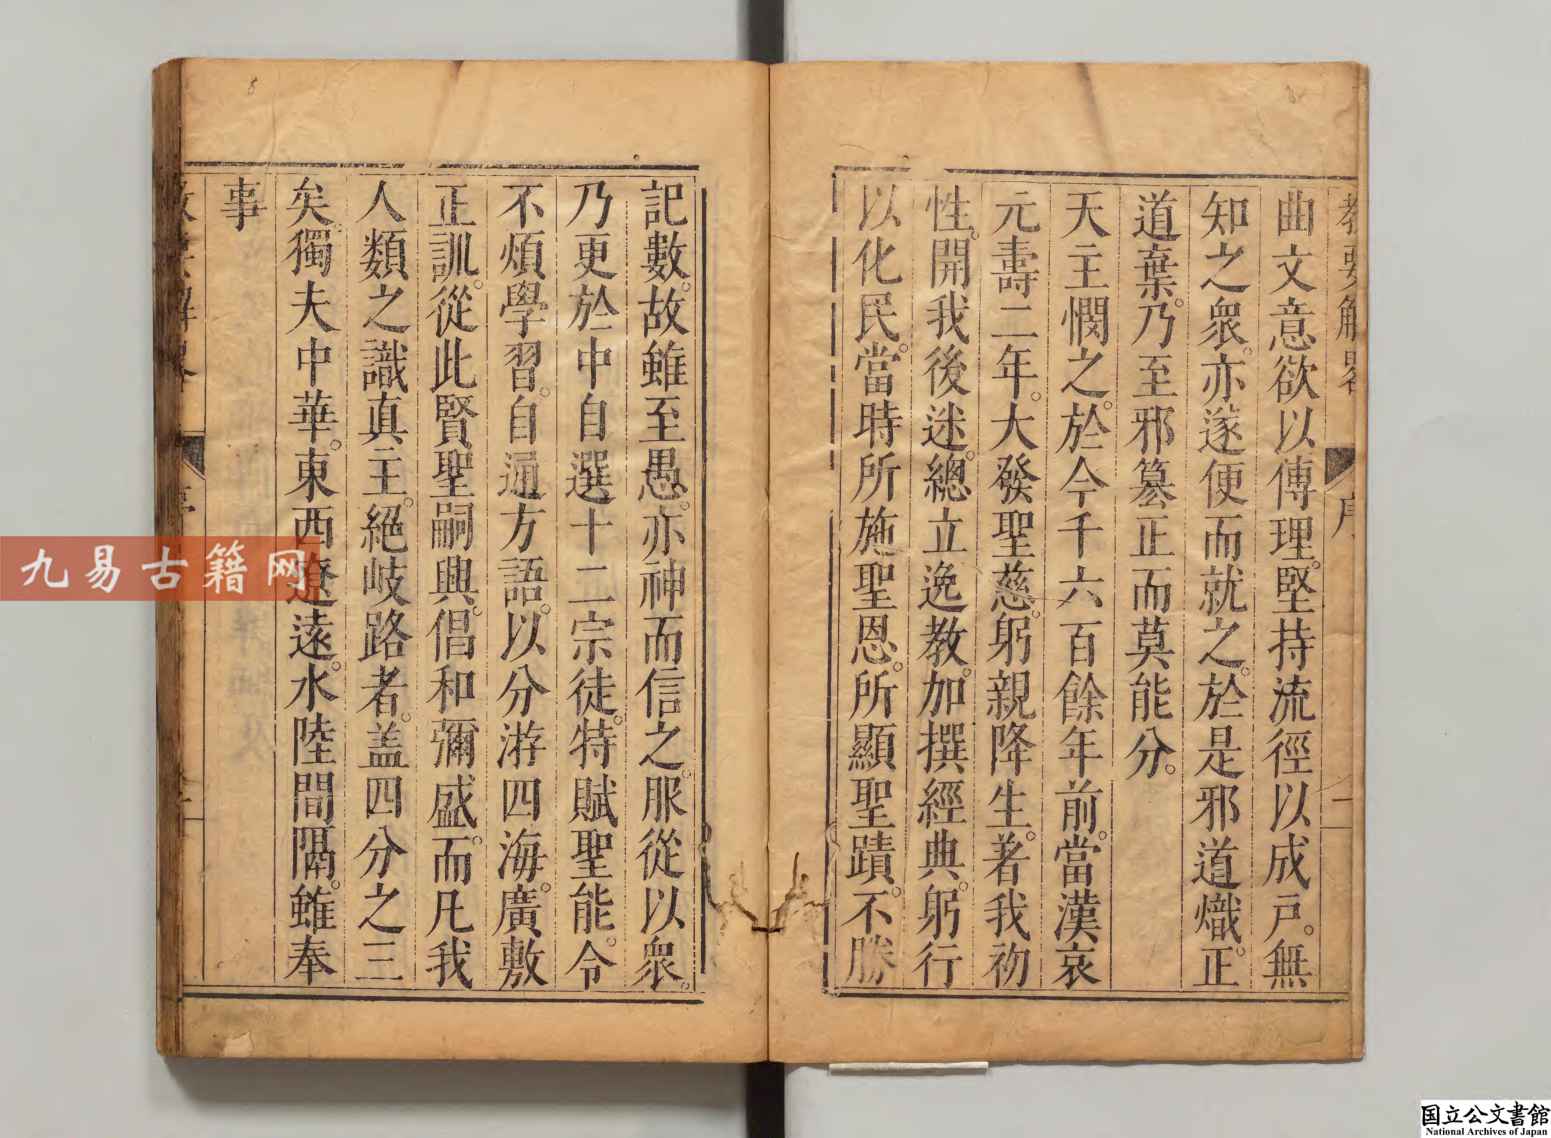 教要解畧
序
二
曲文意欲以傳理。堅持流徑以成戸。無
知之衆。亦遂便而就之。於是邪道熾。正
道棄。乃至邪篡正而莫能分。
天主憫之。於今千六百餘年前。當漢哀
元壽二年。大發聖慈。躬親降生。著我初
性。開我後迷。總立逸教。加撰經典。躬行
以化民。當時所施聖恩。所顯聖蹟。不勝
記數。故雖至愚。亦神而信之。服從以衆。
乃更於中自選十二宗徒。特賦聖能。令
不煩學習。自通方語。以分游四海。廣敷
正訓。從此賢聖嗣興。倡和彌盛。而凡我
人類之識真主。絕岐路者。盖四分之三
矣獨夫中華。東西遼遠。水陸間隔。雖奉
事
九易古籍网
国立公文書館
National Archives of Japan